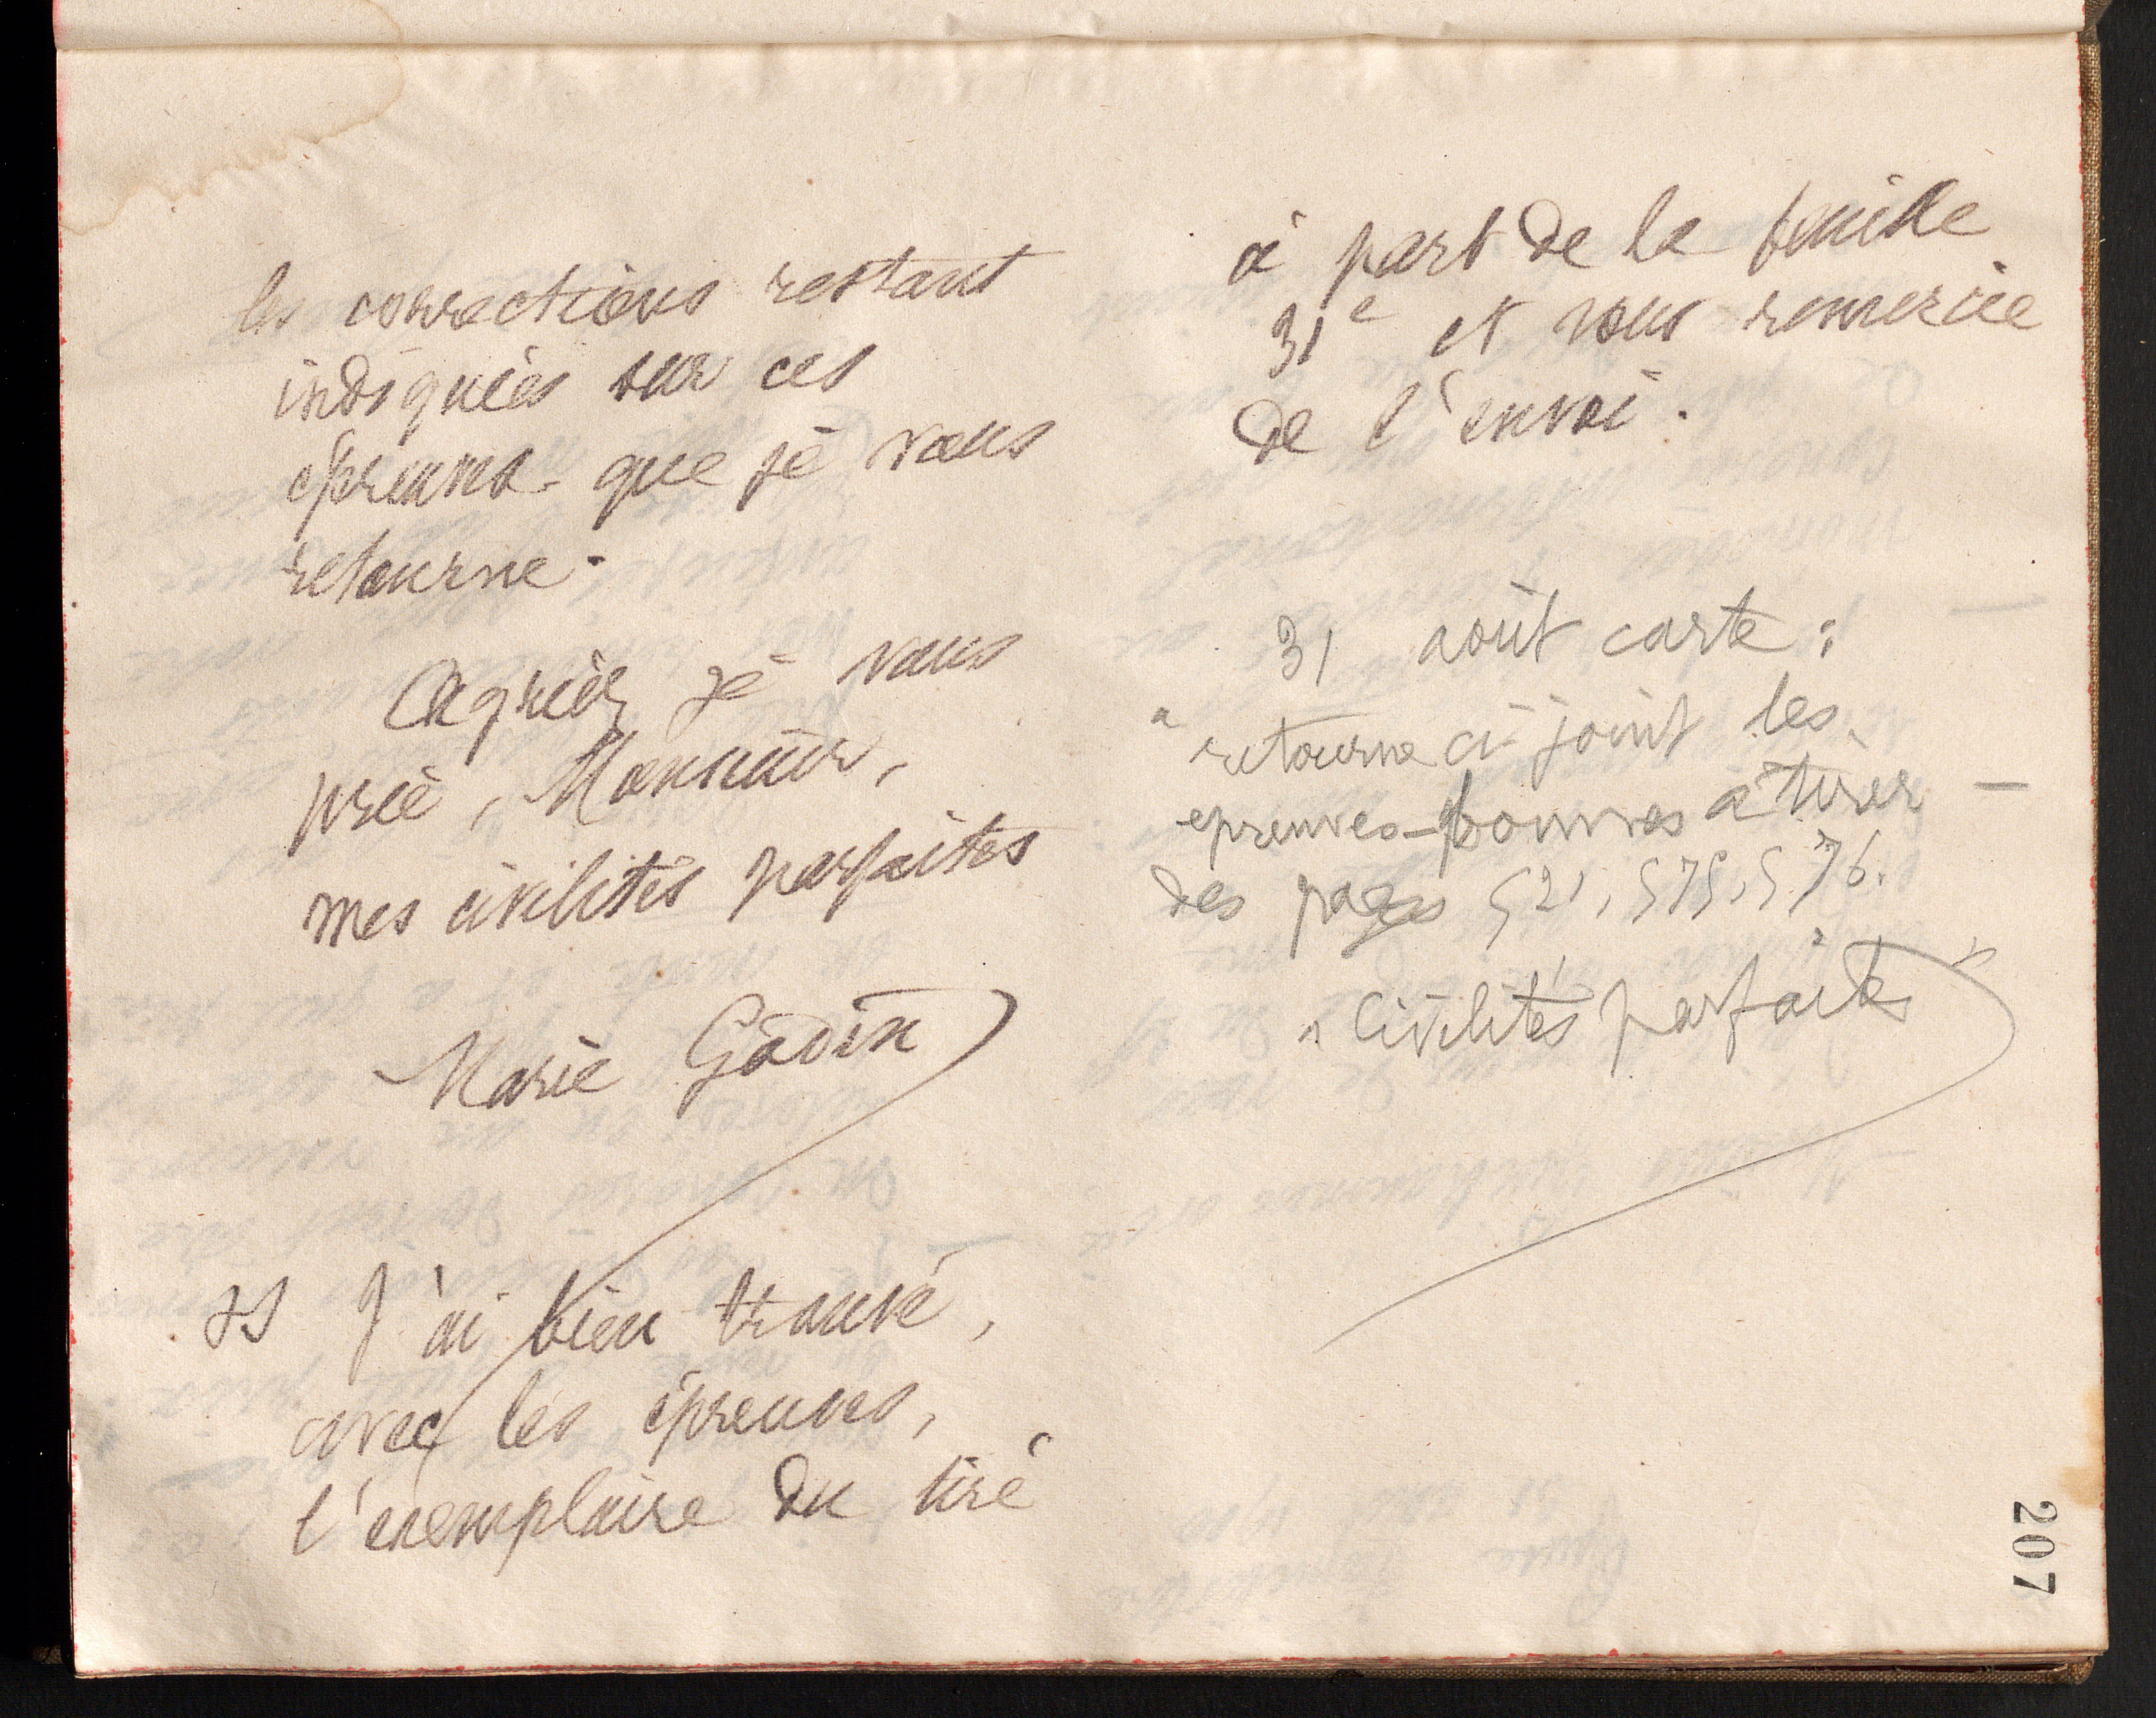 les corrections restant
indiquées sur ces
épreuves que je vous
retourne.
Agréez, je vous
prie, Monsieur,
mes civilités parfaites
Marie Godin
PS J'ai bien trouvé,
avec les épreuves,
l'exemplaire du tiré
à part de la feuille
31e et vous remercie
de l'envoi.
31 août carte :
" retourne ci-joint les
epreuves bonnes à tirer —
des pages 521, 575, 576.
" Civilités parfaites "
207